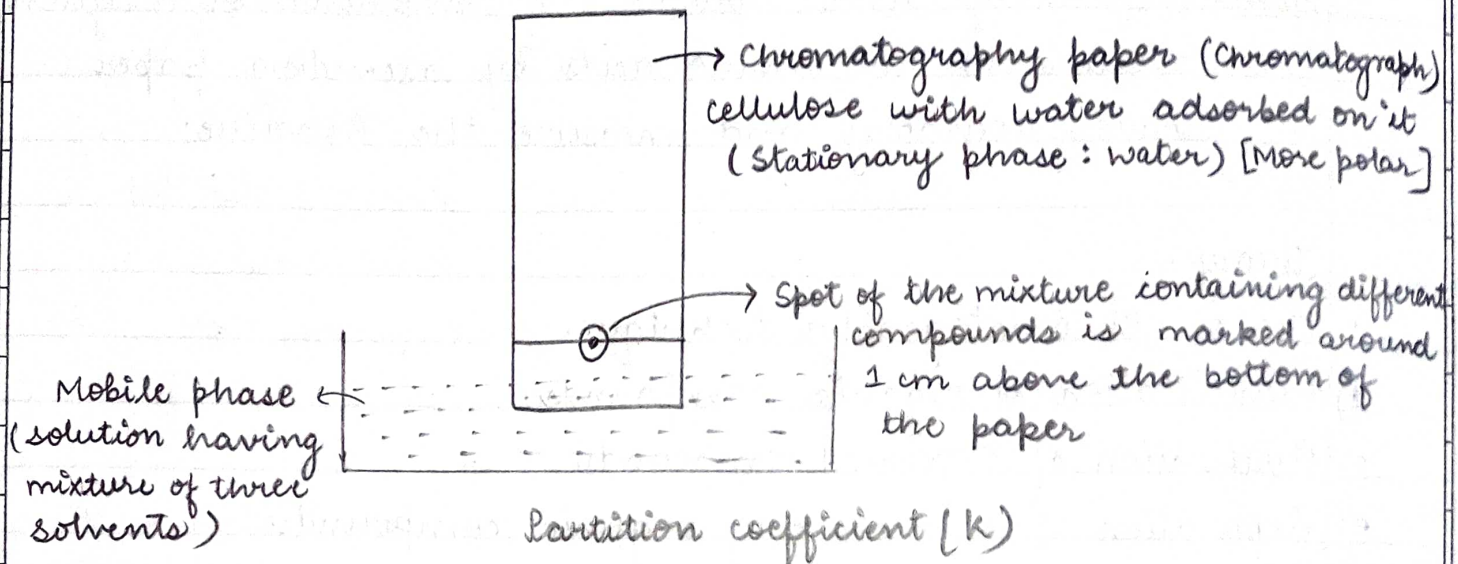 Chromatography paper (Chromatograph)
cellulose with water adsorbed on it
(Stationary phase : water) [More polar]
Spot of the mixture containing different
compounds is marked around
1 cm above the bottom of
the paper
Mobile phase
(solution having
mixture of three
solvents)
Partition coefficient [K)